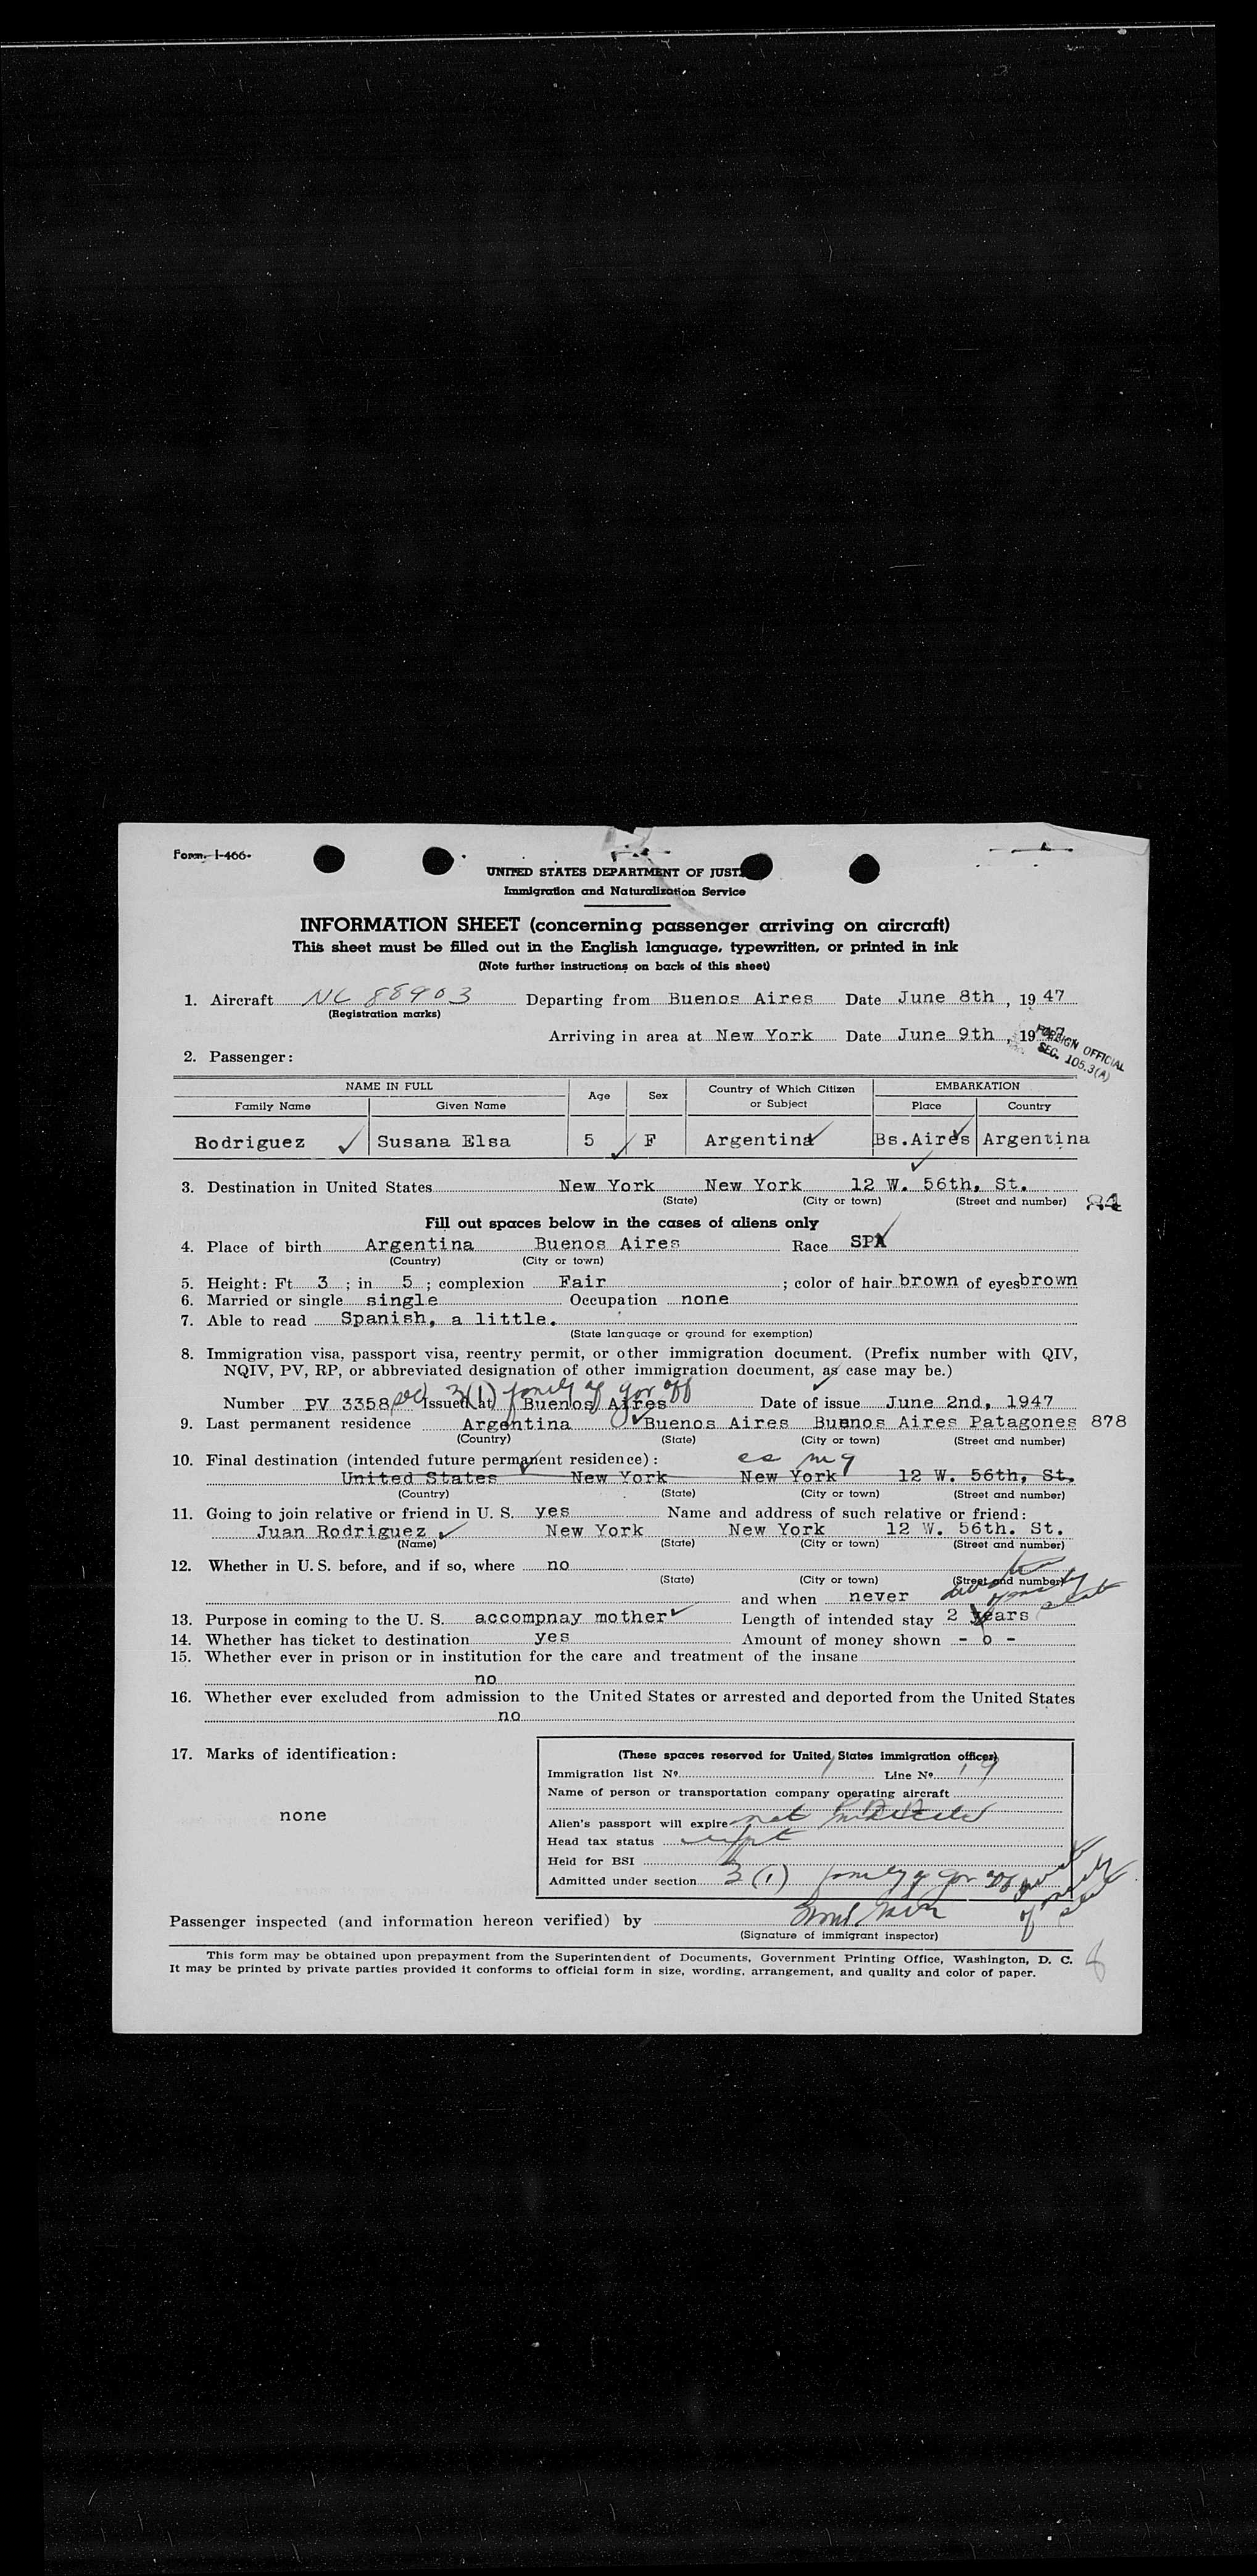 Form. I-466
UNITED STATES DEPARTMENT OF JUST
Immigration and Naturalization Service
INFORMATION SHEET (concerning passenger arriving on aircraft)
This sheet must be filled out in the English language, typewritten, or printed in ink
(Note further instructions on back of this sheet)
1. Aircraft NC 88903 Departing from Buenos Aires Date June 8th, 1947
(Registration marks)
Arriving in area at New York Date June 9th, 1947
FOREIGN OFFICIAL
SEC. 105.3(A)
2. Passenger:
NAME IN FULL Age Sex Country of Which Citizen or Subject EMBARKATION
Family Name Given Name Place Country
Rodriguez Susana Elsa 5 F Argentina Bs.Aires Argentina
3. Destination in United States New York New York 12 W. 56th, St.
(State) (City or town) (Street and number) 84
Fill out spaces below in the cases of aliens only
4. Place of birth Argentina Buenos Aires Race SPA
(Country) (City or town)
5. Height: Ft 3 ; in 5 ; complexion Fair ; color of hair brown of eyes brown
6. Married or single single Occupation none
7. Able to read Spanish, a little.
(State language or ground for exemption)
8. Immigration visa, passport visa, reentry permit, or other immigration document. (Prefix number with QIV,
NQIV, PV, RP, or abbreviated designation of other immigration document, as case may be.)
sec 3(1) family of gov off
Number PV 3358 Issued at Buenos Aires Date of issue June 2nd, 1947
9. Last permanent residence Argentina Buenos Aires Buenos Aires Patagones 878
(Country) (State) (City or town) (Street and number)
10. Final destination (intended future permanent residence):
United States New York New York 12 W. 56th, St.
(Country) (State) (City or town) (Street and number)
11. Going to join relative or friend in U. S. yes Name and address of such relative or friend:
Juan Rodriguez New York New York 12 W. 56th. St.
(Name) (State) (City or town) (Street and number)
12. Whether in U. S. before, and if so, where no
(State) (City or town) (Street and number)
and when never
13. Purpose in coming to the U. S. accompnay mother Length of intended stay 2 years
14. Whether has ticket to destination yes Amount of money shown - o -
15. Whether ever in prison or in institution for the care and treatment of the insane
no
16. Whether ever excluded from admission to the United States or arrested and deported from the United States
no
17. Marks of identification:
none
(These spaces reserved for United States immigration officer)
Immigration list No. 1 Line No. 19
Name of person or transportation company operating aircraft
Alien's passport will expire not
Head tax status
Held for BSI
Admitted under section 3 (1) family of gov off
Passenger inspected (and information hereon verified) by
(Signature of immigrant inspector)
This form may be obtained upon prepayment from the Superintendent of Documents, Government Printing Office, Washington, D. C.
It may be printed by private parties provided it conforms to official form in size, wording, arrangement, and quality and color of paper.
8